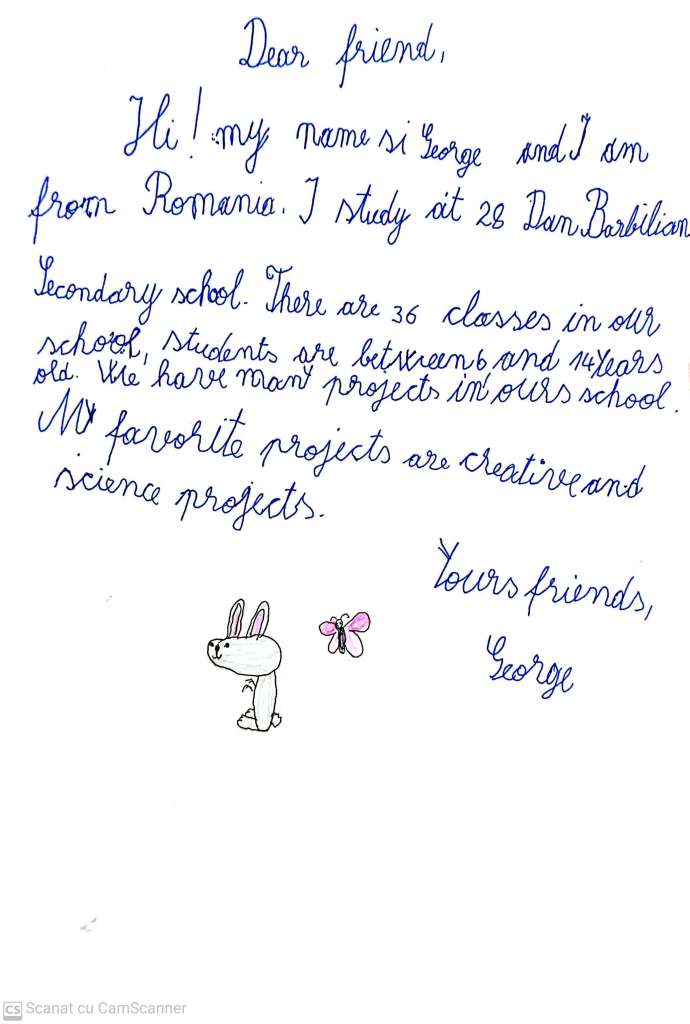 Dear friend,
Hi! my name si George and I am
from Romania. I study at 28 Dan Barbilian
Secondary school. There are 36 classes in our
school, students are between 6 and 14 years
old. We have many projects in ours school.
My favorite projects are creative and
science projects.
Yours friends,
George
CS Scanat cu CamScanner